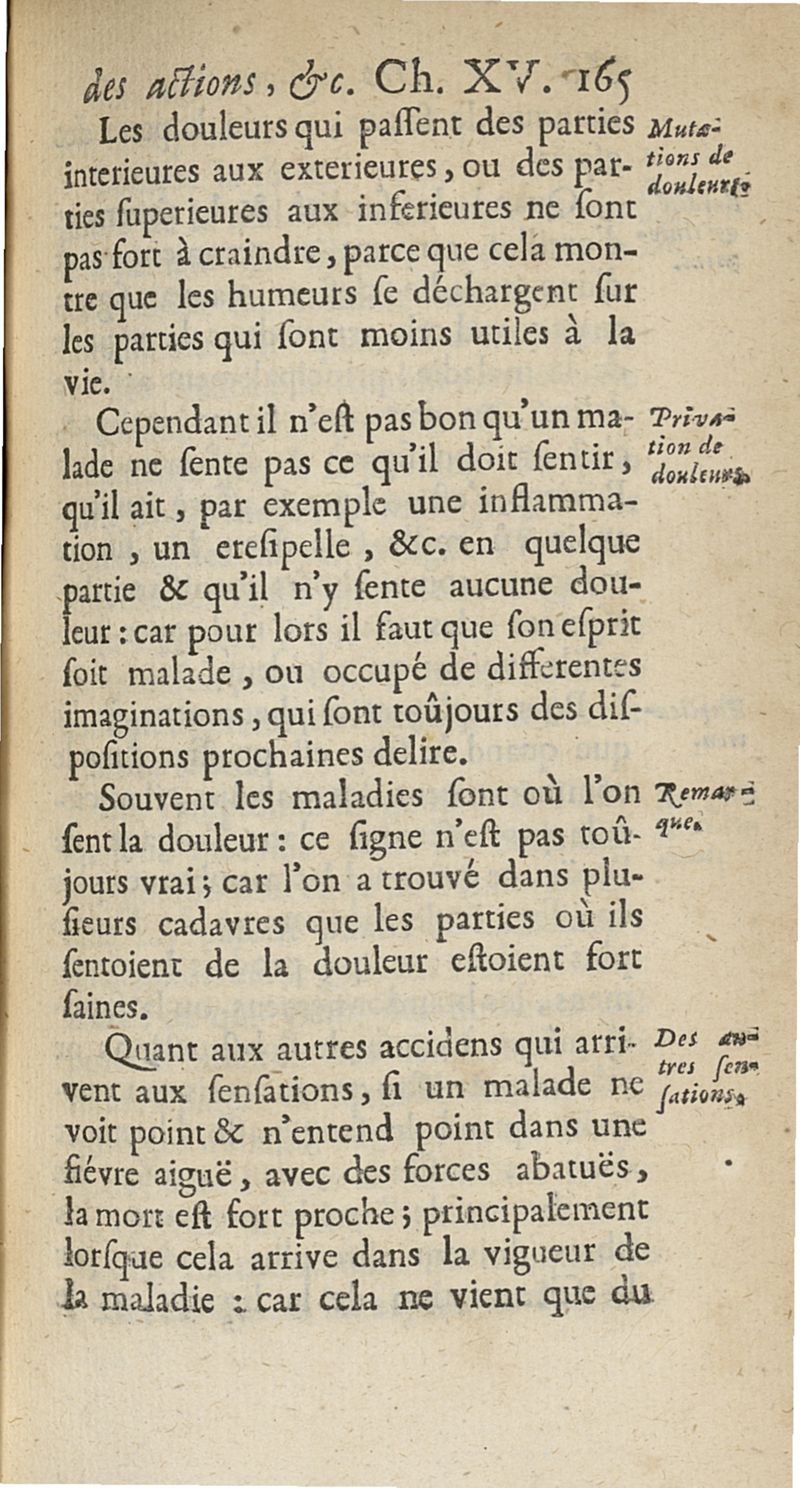 des actions, &c. Ch. XV. 165
Les douleurs qui paſſent des parties
interieures aux exterieures, ou des par-
ties ſuperieures aux inferieures ne ſont
pas fort à craindre, parce que cela mon-
tre que les humeurs ſe déchargent ſur
les parties qui ſont moins utiles à la
vie.
Muta-
tions de
douleurs.
Cependant il n'eſt pas bon qu'un ma-
lade ne ſente pas ce qu'il doit ſentir,
qu'il ait, par exemple une inflamma-
tion, un ereſipelle, &c. en quelque
partie & qu'il n'y ſente aucune dou-
leur: car pour lors il faut que ſon eſprit
ſoit malade, ou occupé de differentes
imaginations, qui ſont toûjours des diſ-
poſitions prochaines delire.
Priva-
tion de
douleurs.
Souvent les maladies ſont où l'on
ſent la douleur: ce ſigne n'eſt pas toû-
jours vrai; car l'on a trouvé dans plu-
ſieurs cadavres que les parties où ils
ſentoient de la douleur eſtoient fort
ſaines.
Remar-
que.
Quant aux autres accidens qui arri-
vent aux ſenſations, ſi un malade ne
voit point & n'entend point dans une
fiévre aiguë, avec des forces abatuës,
la mort eſt fort proche; principalement
lorſque cela arrive dans la vigueur de
la maladie: car cela ne vient que du
Des au-
tres ſen-
ſations.